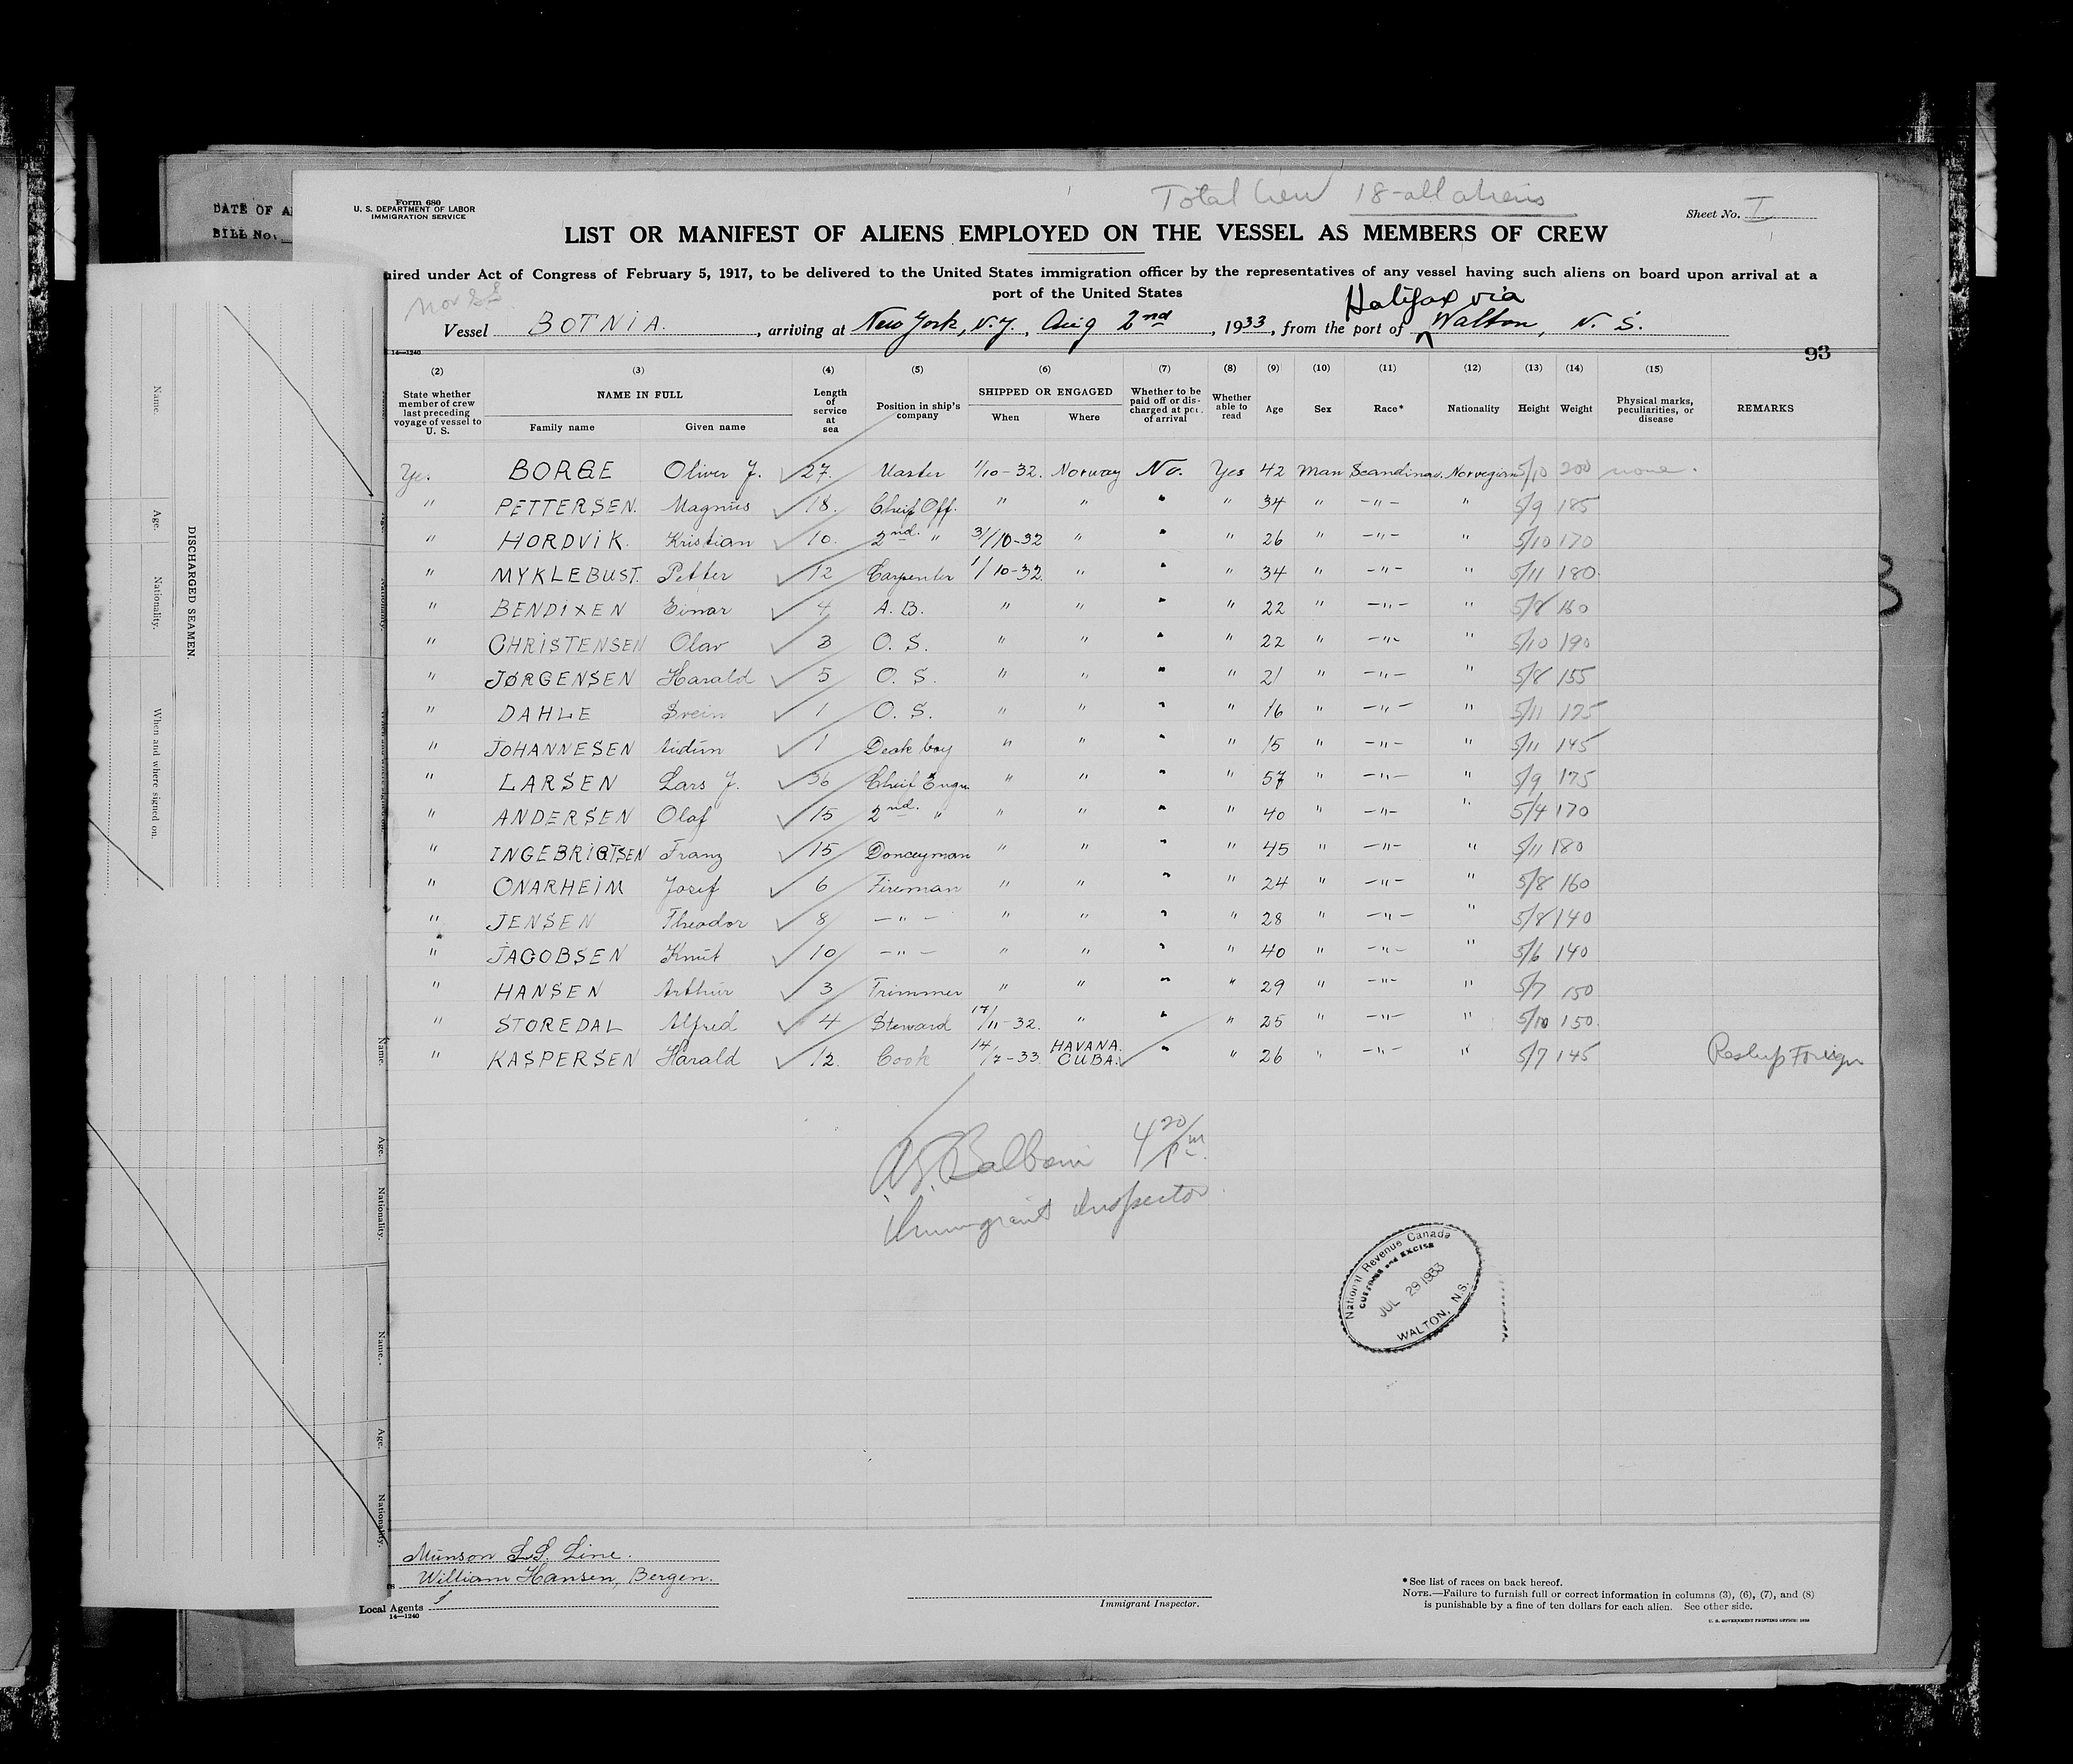 DATE OF A
BILL No.
Form 680
U. S. DEPARTMENT OF LABOR
IMMIGRATION SERVICE
Total Crew 18-all aliens
Sheet No. I
LIST OR MANIFEST OF ALIENS EMPLOYED ON THE VESSEL AS MEMBERS OF CREW
uired under Act of Congress of February 5, 1917, to be delivered to the United States immigration officer by the representatives of any vessel having such aliens on board upon arrival at a
port of the United States
Nor SS
Halifax via
Vessel BOTNIA. , arriving at New York, N.Y., Aug 2nd , 1933, from the port of Walton, N. S.
14—1240
93
(2) (3) (4) (5) (6) (7) (8) (9) (10) (11) (12) (13) (14) (15)
State whether member of crew last preceding voyage of vessel to U. S. NAME IN FULL Family name Given name Length of service at sea Position in ship's company SHIPPED OR ENGAGED When Where Whether to be paid off or discharged at port of arrival Whether able to read Age Sex Race* Nationality Height Weight Physical marks, peculiarities, or disease REMARKS
Yes. BORGE Oliver J. 27. Master 1/10-32. Norway No. Yes 42 Man Scandinav. Norwegian 5/10 200 none.
" PETTERSEN. Magnus 18. Cheif Off. " " " " 34 " -"- " 5/9 185
" HORDVIK. Kristian 10. 2nd. " 31/10-32 " " " 26 " -"- " 5/10 170
" MYKLEBUST. Petter 12 Carpenter 1/10-32. " " " 34 " -"- " 5/11 180.
" BENDIXEN Einar 4 A. B. " " " " 22 " -"- " 5/8 160
" CHRISTENSEN Olav 3 O. S. " " " " 22 " -"- " 5/10 190
" JØRGENSEN Harald 5 O. S. " " " " 21 " -"- " 5/8 155
" DAHLE Svein 1 O. S. " " " " 16 " -"- " 5/11 175
" JOHANNESEN Audun 1 Deck boy " " " " 15 " -"- " 5/11 145
" LARSEN Lars J. 36 Cheif Engn " " " " 57 " -"- " 5/9 175
" ANDERSEN Olaf 15 2nd. " " " " " 40 " -"- " 5/4 170
" INGEBRIGTSEN Franz 15 Donceyman " " " " 45 " -"- " 5/11 180
" ONARHEIM Josef 6 Fireman " " " " 24 " -"- " 5/8 160
" JENSEN Theodor 8 -"- " " " " 28 " -"- " 5/8 140
" JACOBSEN Knut 10 -"- " " " " 40 " -"- " 5/6 140
" HANSEN Arthur 3 Trimmer " " " " 29 " -"- " 5/7 150
" STOREDAL Alfred 4 Steward 17/11-32. " " " 25 " -"- " 5/10 150.
" KASPERSEN Harald 12. Cook 14/7-33. HAVANA. CUBA. " " 26 " -"- " 5/7 145 Reship Foreign
4 20/pm.
Immigrant Inspector
National Revenue Canada
CUSTOMS and EXCISE
JUL 29 1933
WALTON, N.S.
Munson S.S. Line.
William Hansen, Bergen.
Local Agents
14—1240
Immigrant Inspector.
*See list of races on back hereof.
NOTE.—Failure to furnish full or correct information in columns (3), (6), (7), and (8)
is punishable by a fine of ten dollars for each alien. See other side.
U. S. GOVERNMENT PRINTING OFFICE: 1932
DISCHARGED SEAMEN.
Name. Age. Nationality. When and where signed on.
Name. Age. Nationality. Name. Age. Nationality.